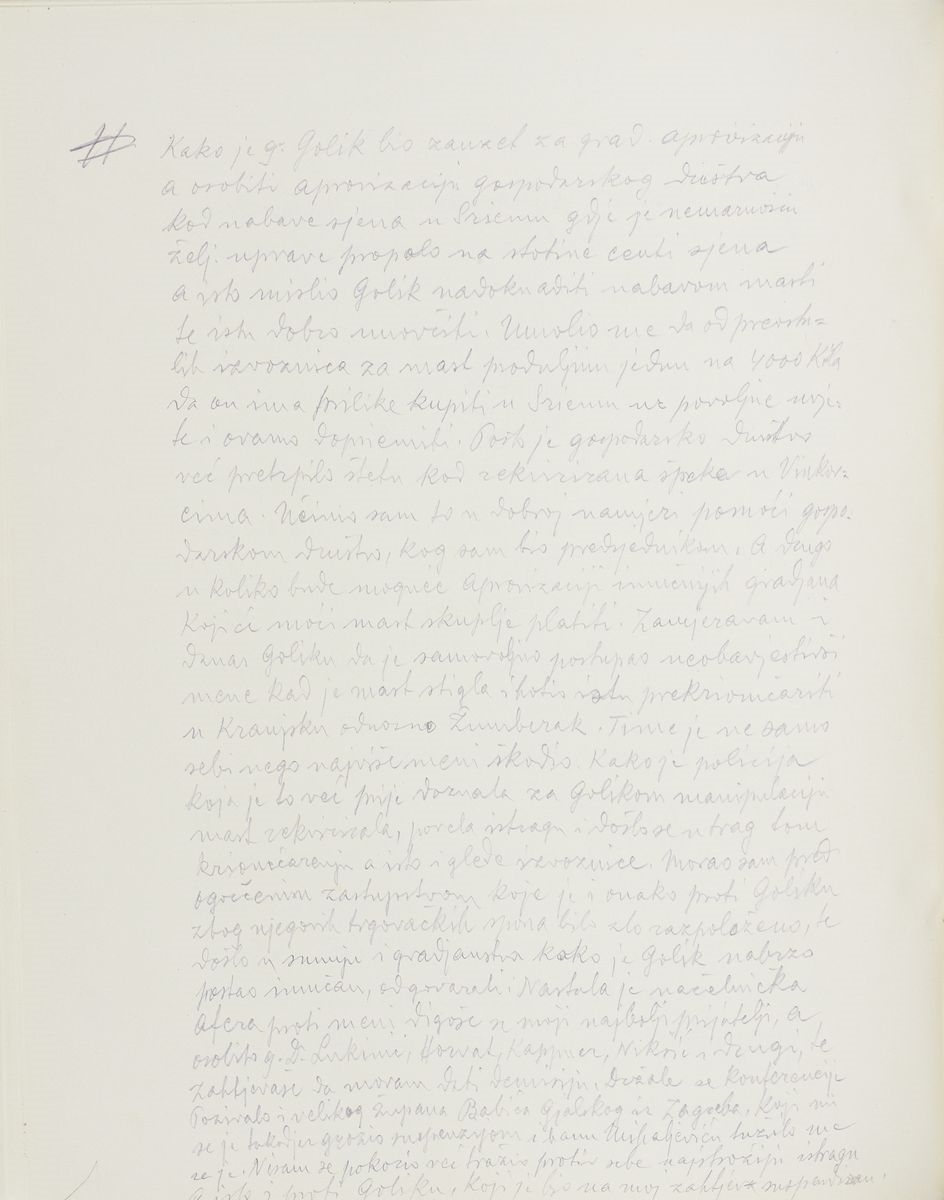 # Kako je g. Golik bio zauzet za grad. aprovizaciju
a osobiti aprovizaciju gospodarskog društva
kod nabave sjena u Sriemu gdje je nemarnošću
želj. uprave propalo na stotine centi sjena
a isto mislio Golik nadoknaditi nabavom masti
te istu dobro unovčiti. Umolio me da od preosta=
lih izvoznica za mast produljim jednu na 4000 Kila
da on ima prilike kupiti u Sriemu uz povoljne uvje=
te i ovamo dopremiti. Pošto je gospodarsko društvo
već pretrpilo štetu kod rekvirirana špeka u Vinkov=
cima. Učinio sam to u dobroj namjeri pomoći gospo=
darskom društvu, kog sam bio predsjednikom. A drugo
u koliko bude moguće aprovizaciji imućnijih gradjana
koji će moći mast skuplje platiti. Zamjeravam i
danas Goliku da je samovoljno postupao neobavjestivši
mene kad je mast stigla i hotio istu prekriomčariti
u Kranjsku odnosno Žumberak. Time je ne samo
sebi nego najviše meni škodio. Kako je policija
koja je to već prije doznala za Golikom manipulaciju
mast rekvirirala, povela istragu i došlo se u trag tom
kriomčarenju a isto i glede izvoznice. Morao sam pred
ogorčenim zastupstvom koje je i onako proti Goliku
zbog njegovih trgovačkih spina bilo zlo razpoloženo, te
došlo u sumnju i gradjanstvo kako je Golik nabrzo
postao imućan, odgovarati i Nastala je načelnička
Afera proti meni digoše se moji najbolji prijatelji, a
osobito g. Dr. Lukinić, Horvat, Nikšić i drugi, te
zahtjevaše da moram dati demisiju. Držale se konferencije
Pozivalo i velikog župana Babića Gjalskog iz Zagreba, koji mi
se je takodjer grozio suspenzijom i banu Mihaljeviću tužilo me
se je. Nisam se pokorio već tražio protiv sebe najstrožiju istragu
a isto i proti Goliku, koji je bio na moj zahtjev suspendiran.